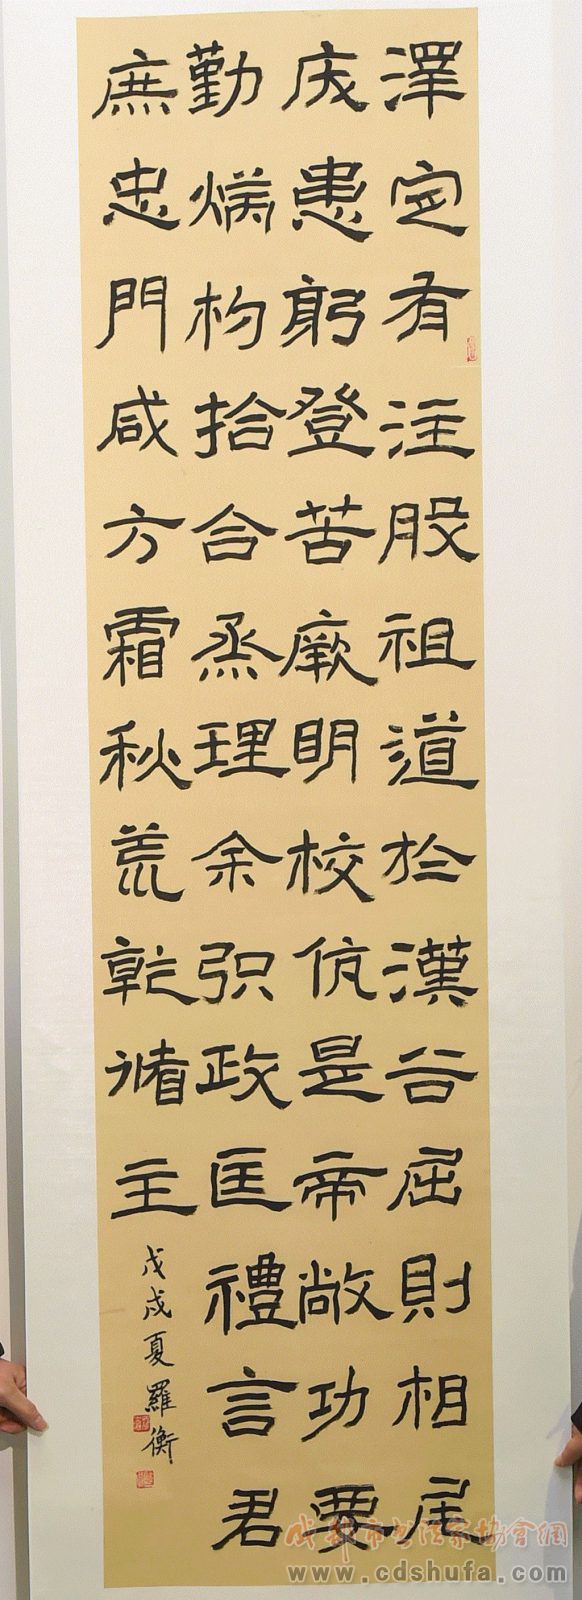 澤定有注股祖道於漢谷屈則相尾
患躬登苦厥明校伉是帝敞功要
勤煥杓拾合烝理余政匡禮言君
庶忠門咸方霜秋荒乾脩主
戊戌夏羅衡
成都市书法家協會網
www.cdshufa.com